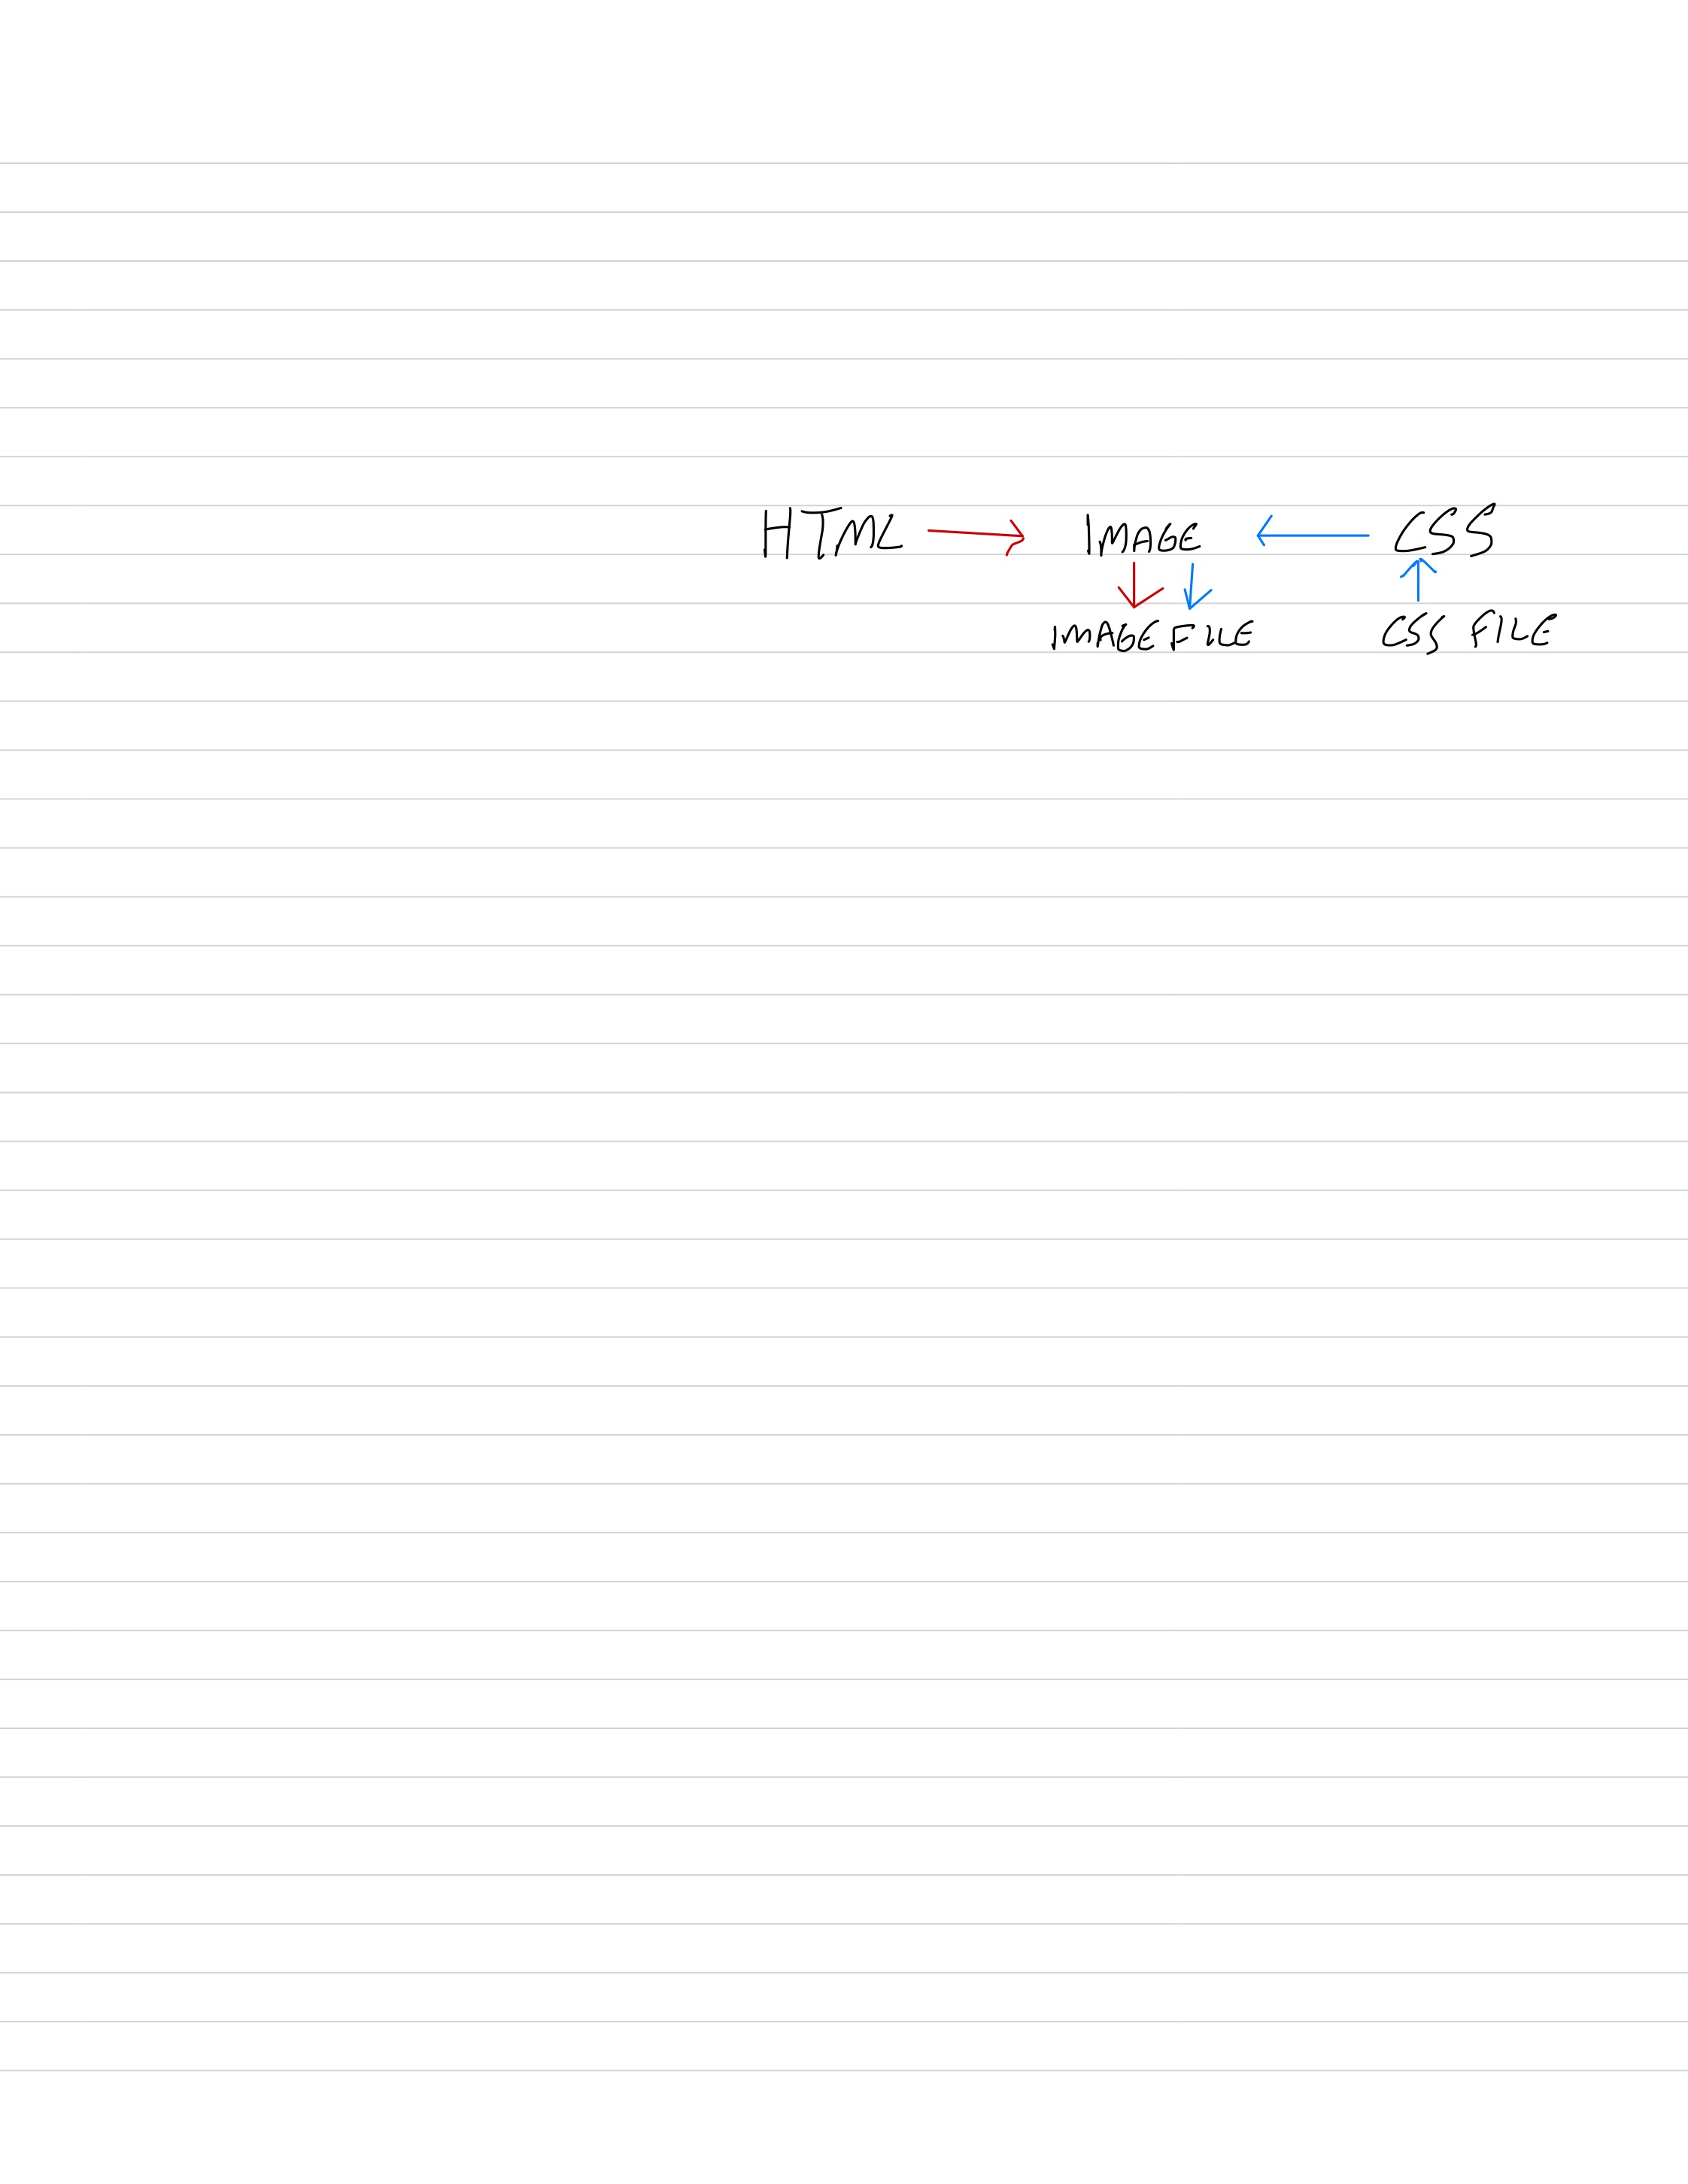 HTML IMAGE CSS
IMAGE FILE CSS FILE